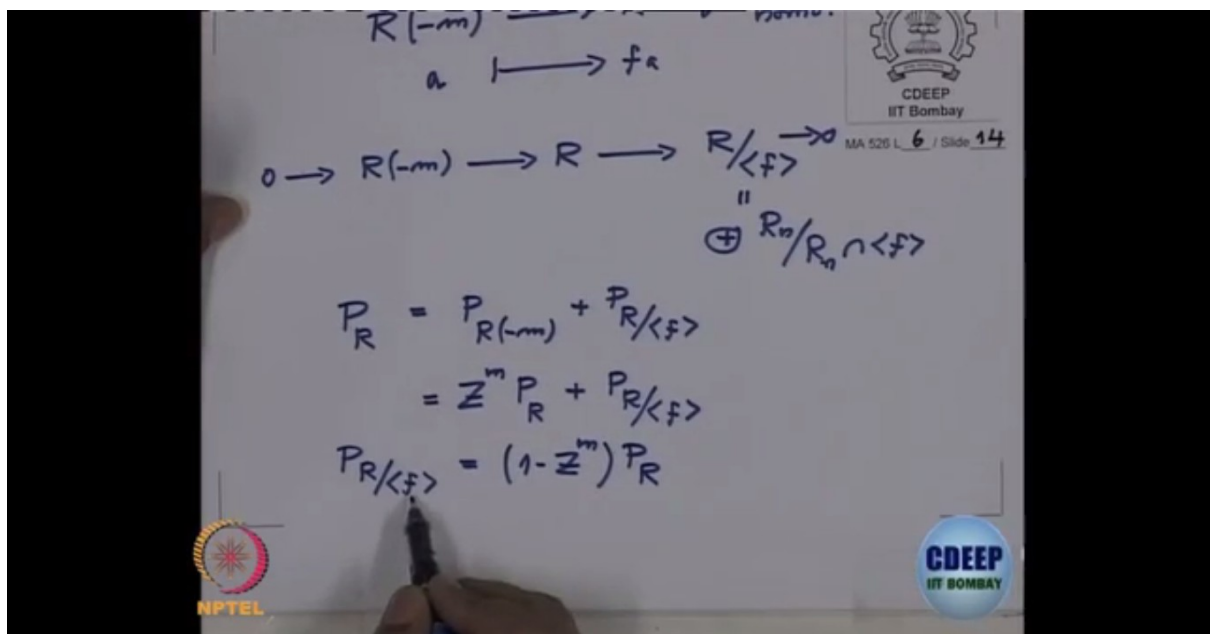 R(-m)
a ⟼ fa
CDEEP
IIT Bombay
MA 526 L 6 / Slide 14
0 → R(-m) → R → R/<f> → 0
"
⊕ Rₙ/Rₙ ∩ <f>
P_R = P_R(-m) + P_R/<f>
= Z^m P_R + P_R/<f>
P_R/<f> = (1 - Z^m) P_R
NPTEL
CDEEP
IIT BOMBAY